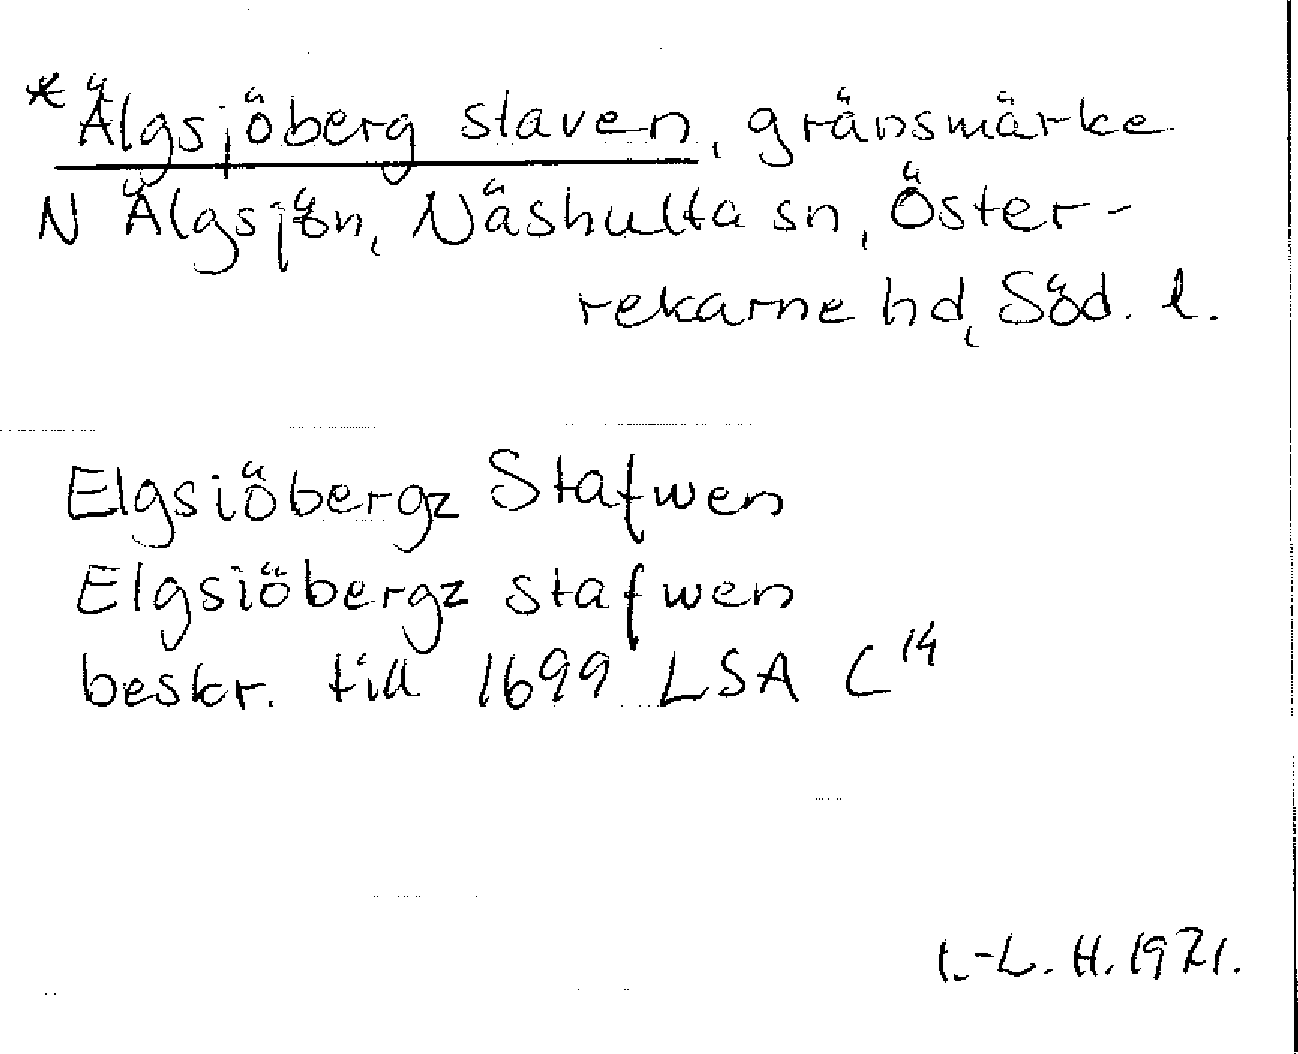 *Älgsjöberg staven, gränsmärke
N Älgsjön, Näshulta sn, Öster-
rekarne hd, Söd. l.
Elgsiöbergz Stafwen
Elgsiöbergz stafwen
beskr. till 1699 LSA C14
I.-L. H. 1971.